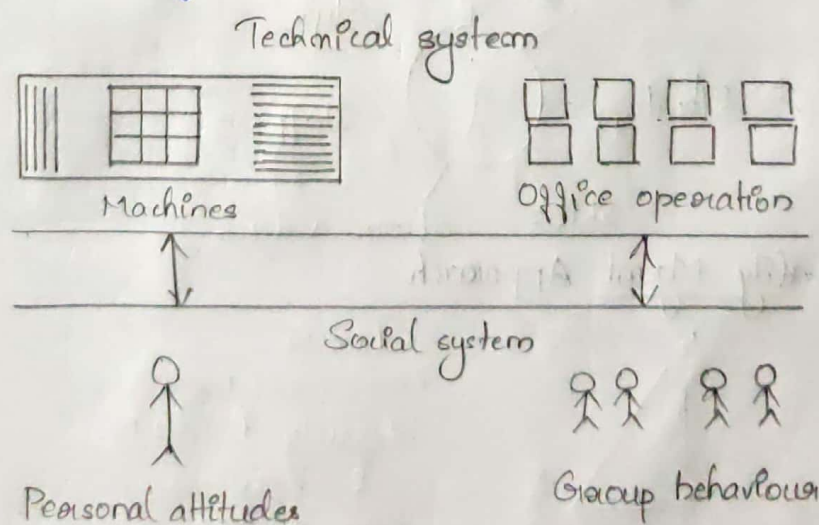 Technical system
Machines
Office operation
Social system
Personal attitudes
Group behaviour